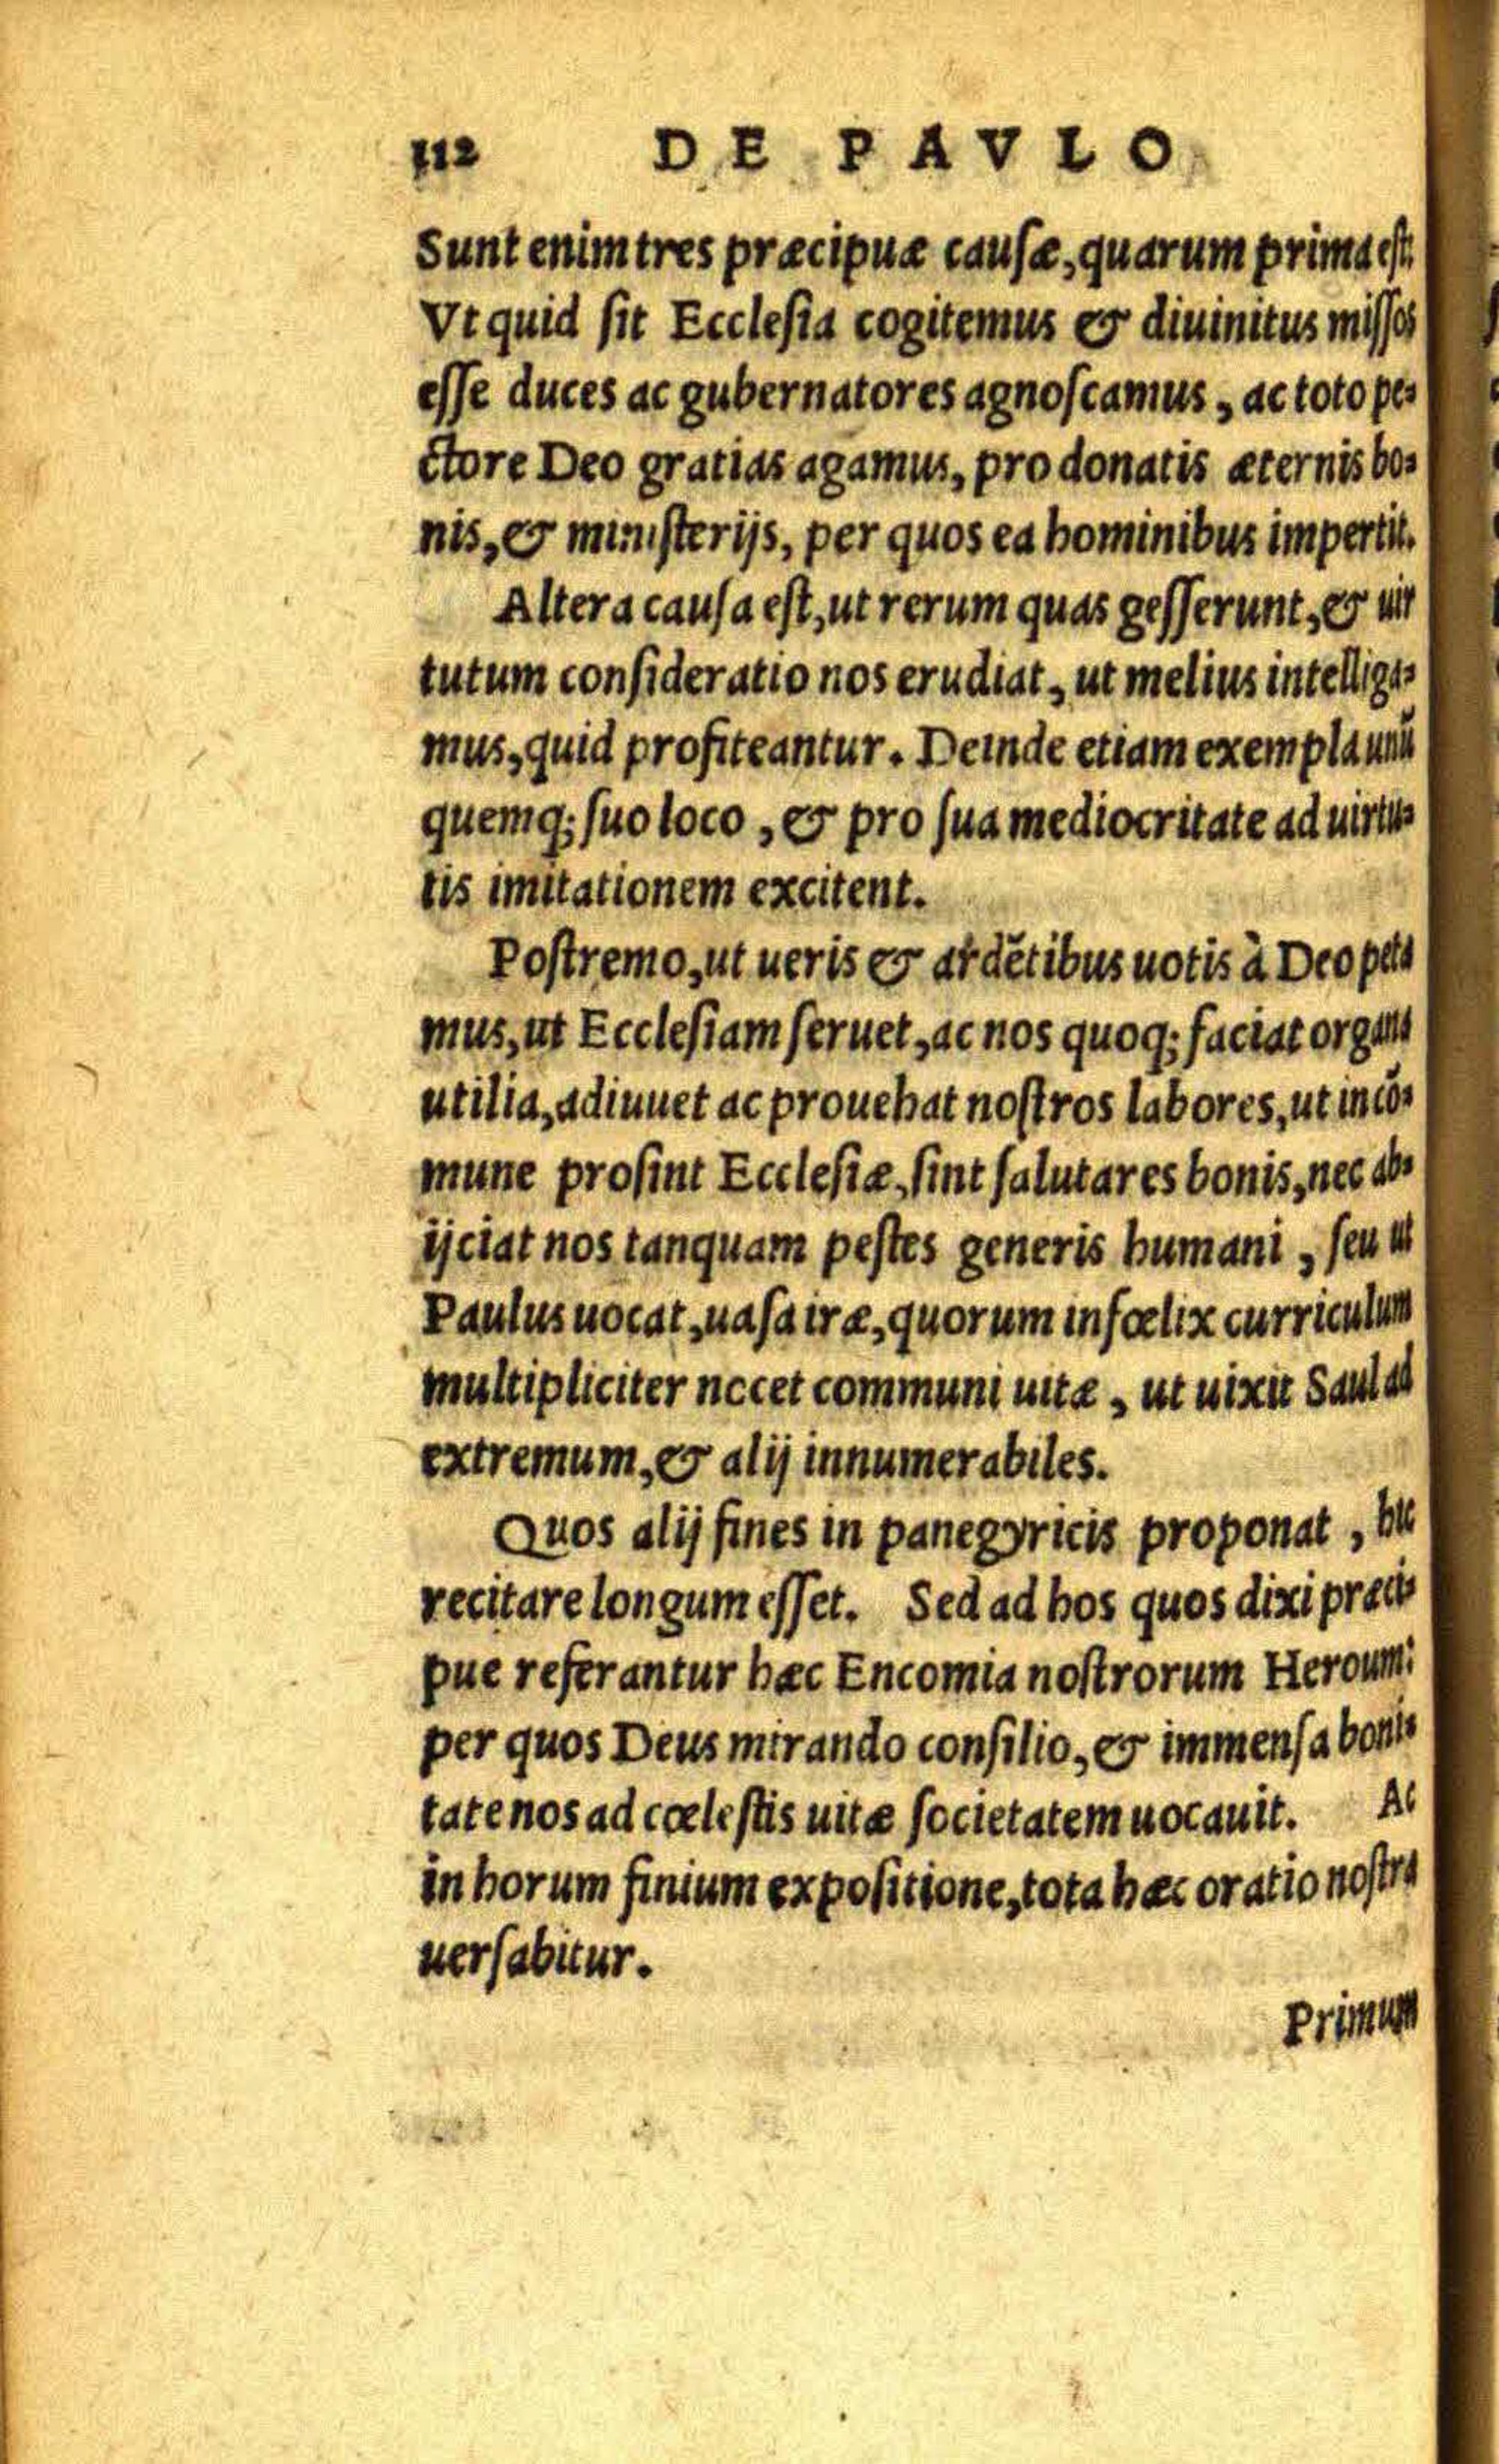 112 DE PAVLO
Sunt enim tres præcipuæ cauſæ, quarum prima eſt:
Vt quid ſit Eccleſia cogitemus & diuinitus miſſos
eſſe duces ac gubernatores agnoſcamus, ac toto pe-
ctore Deo gratias agamus, pro donatis æternis bo-
nis, & miniſterijs, per quos ea hominibus impertit.
Altera cauſa eſt, ut rerum quas geſſerunt, & uir
tutum conſideratio nos erudiat, ut melius intelliga-
mus, quid profiteantur. Deinde etiam exempla unū
quemq; ſuo loco, & pro ſua mediocritate ad uirtu-
tis imitationem excitent.
Poſtremo, ut ueris & ardētibus uotis à Deo peta
mus, ut Eccleſiam ſeruet, ac nos quoq; faciat organa
utilia, adiuuet ac prouehat noſtros labores, ut in cō-
mune proſint Eccleſiæ, ſint ſalutares bonis, nec ab-
ijciat nos tanquam peſtes generis humani, ſeu ut
Paulus uocat, uaſa iræ, quorum infœlix curriculum
multipliciter nocet communi uitæ, ut uixit Saul ad
extremum, & alij innumerabiles.
Quos alij fines in panegyricis proponat, hic
recitare longum eſſet. Sed ad hos quos dixi præci-
pue referantur hæc Encomia noſtrorum Heroum:
per quos Deus mirando conſilio, & immenſa boni-
tate nos ad cœleſtis uitæ ſocietatem uocauit. Ac
in horum finium expoſitione, tota hæc oratio noſtra
uerſabitur.
Primum